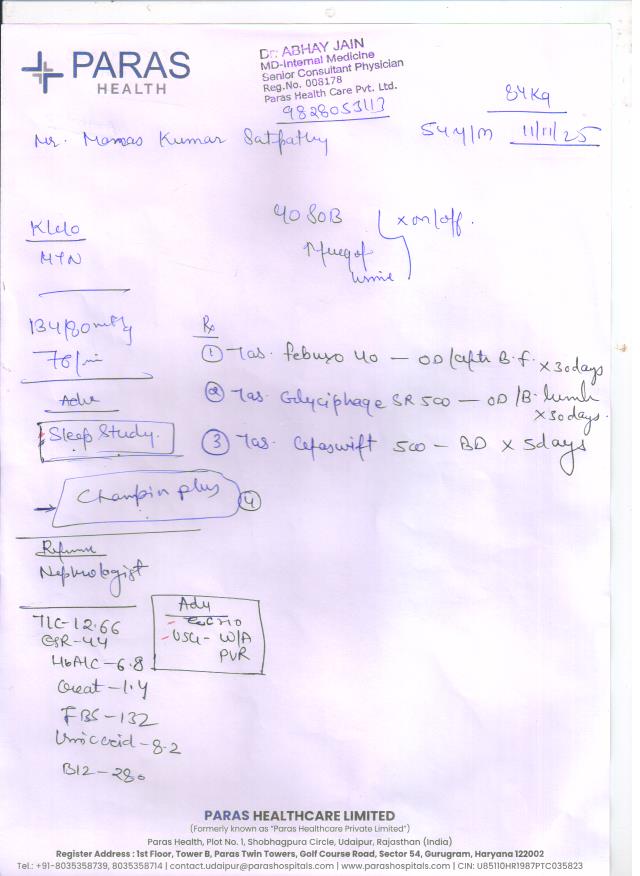 PARAS
HEALTH
Dr. ABHAY JAIN
MD-Internal Medicine
Senior Consultant Physician
Reg.No. 008178
Paras Health Care Pvt. Ltd.
9828053113
84Kg
Mr. Manas Kumar Satpathy
54Y/M 11/11/25
K/c/o
HTN
c/o SOB x on/off.
↑freq of
urine
134/80mmHg
76/min
Rx
① Tab. Febuxo 40 — OD/after B.f. x 30days
② Tab. Glyciphage SR 500 — OD/B. lunch
x 30days.
③ Tab. Cefaswift 500 — BD x 5days
Adv
Sleep Study.
Champin plus ④
Nephrologist
Adv
USG - W/A
PVR
TLC-12.66
ESR-44
HbA1C-6.8
Creat-1.4
FBS-132
Uric acid-8.2
B12-280
PARAS HEALTHCARE LIMITED
(Formerly known as "Paras Healthcare Private Limited")
Paras Health, Plot No. 1, Shobhagpura Circle, Udaipur, Rajasthan (India)
Register Address : 1st Floor, Tower B, Paras Twin Towers, Golf Course Road, Sector 54, Gurugram, Haryana 122002
Tel.: +91-8035358739, 8035358714 | contact.udaipur@parashospitals.com | www.parashospitals.com | CIN: U85110HR1987PTC035823